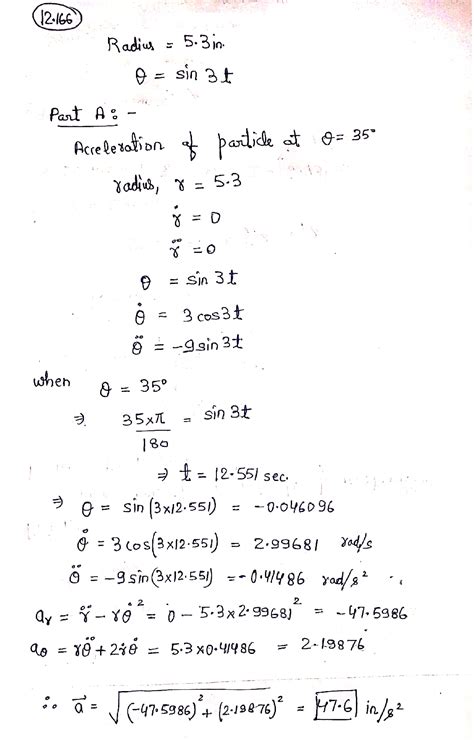 12.166
Radius = 5.3in.
θ = sin 3t
Part A: -
Acceleration of particle at θ= 35°
radius, r = 5.3
ṙ = 0
r̈ = 0
θ = sin 3t
θ̇ = 3 cos3t
θ̈ = -9 sin 3t
when θ = 35°
⇒ 35×π/180 = sin 3t
⇒ t = 12.551 sec.
⇒ θ = sin (3×12.551) = -0.046096
θ̇ = 3 cos(3×12.551) = 2.99681 rad/s
θ̈ = -9 sin(3×12.551) = -0.41486 rad/s²
aᵣ = r̈ - rθ̇² = 0 - 5.3×2.99681² = -47.5986
aθ = rθ̈ + 2ṙθ̇ = 5.3×0.41486 = 2.19876
∴ a⃗ = √(-47.5986)² + (2.19876)² = 47.6 in/s²